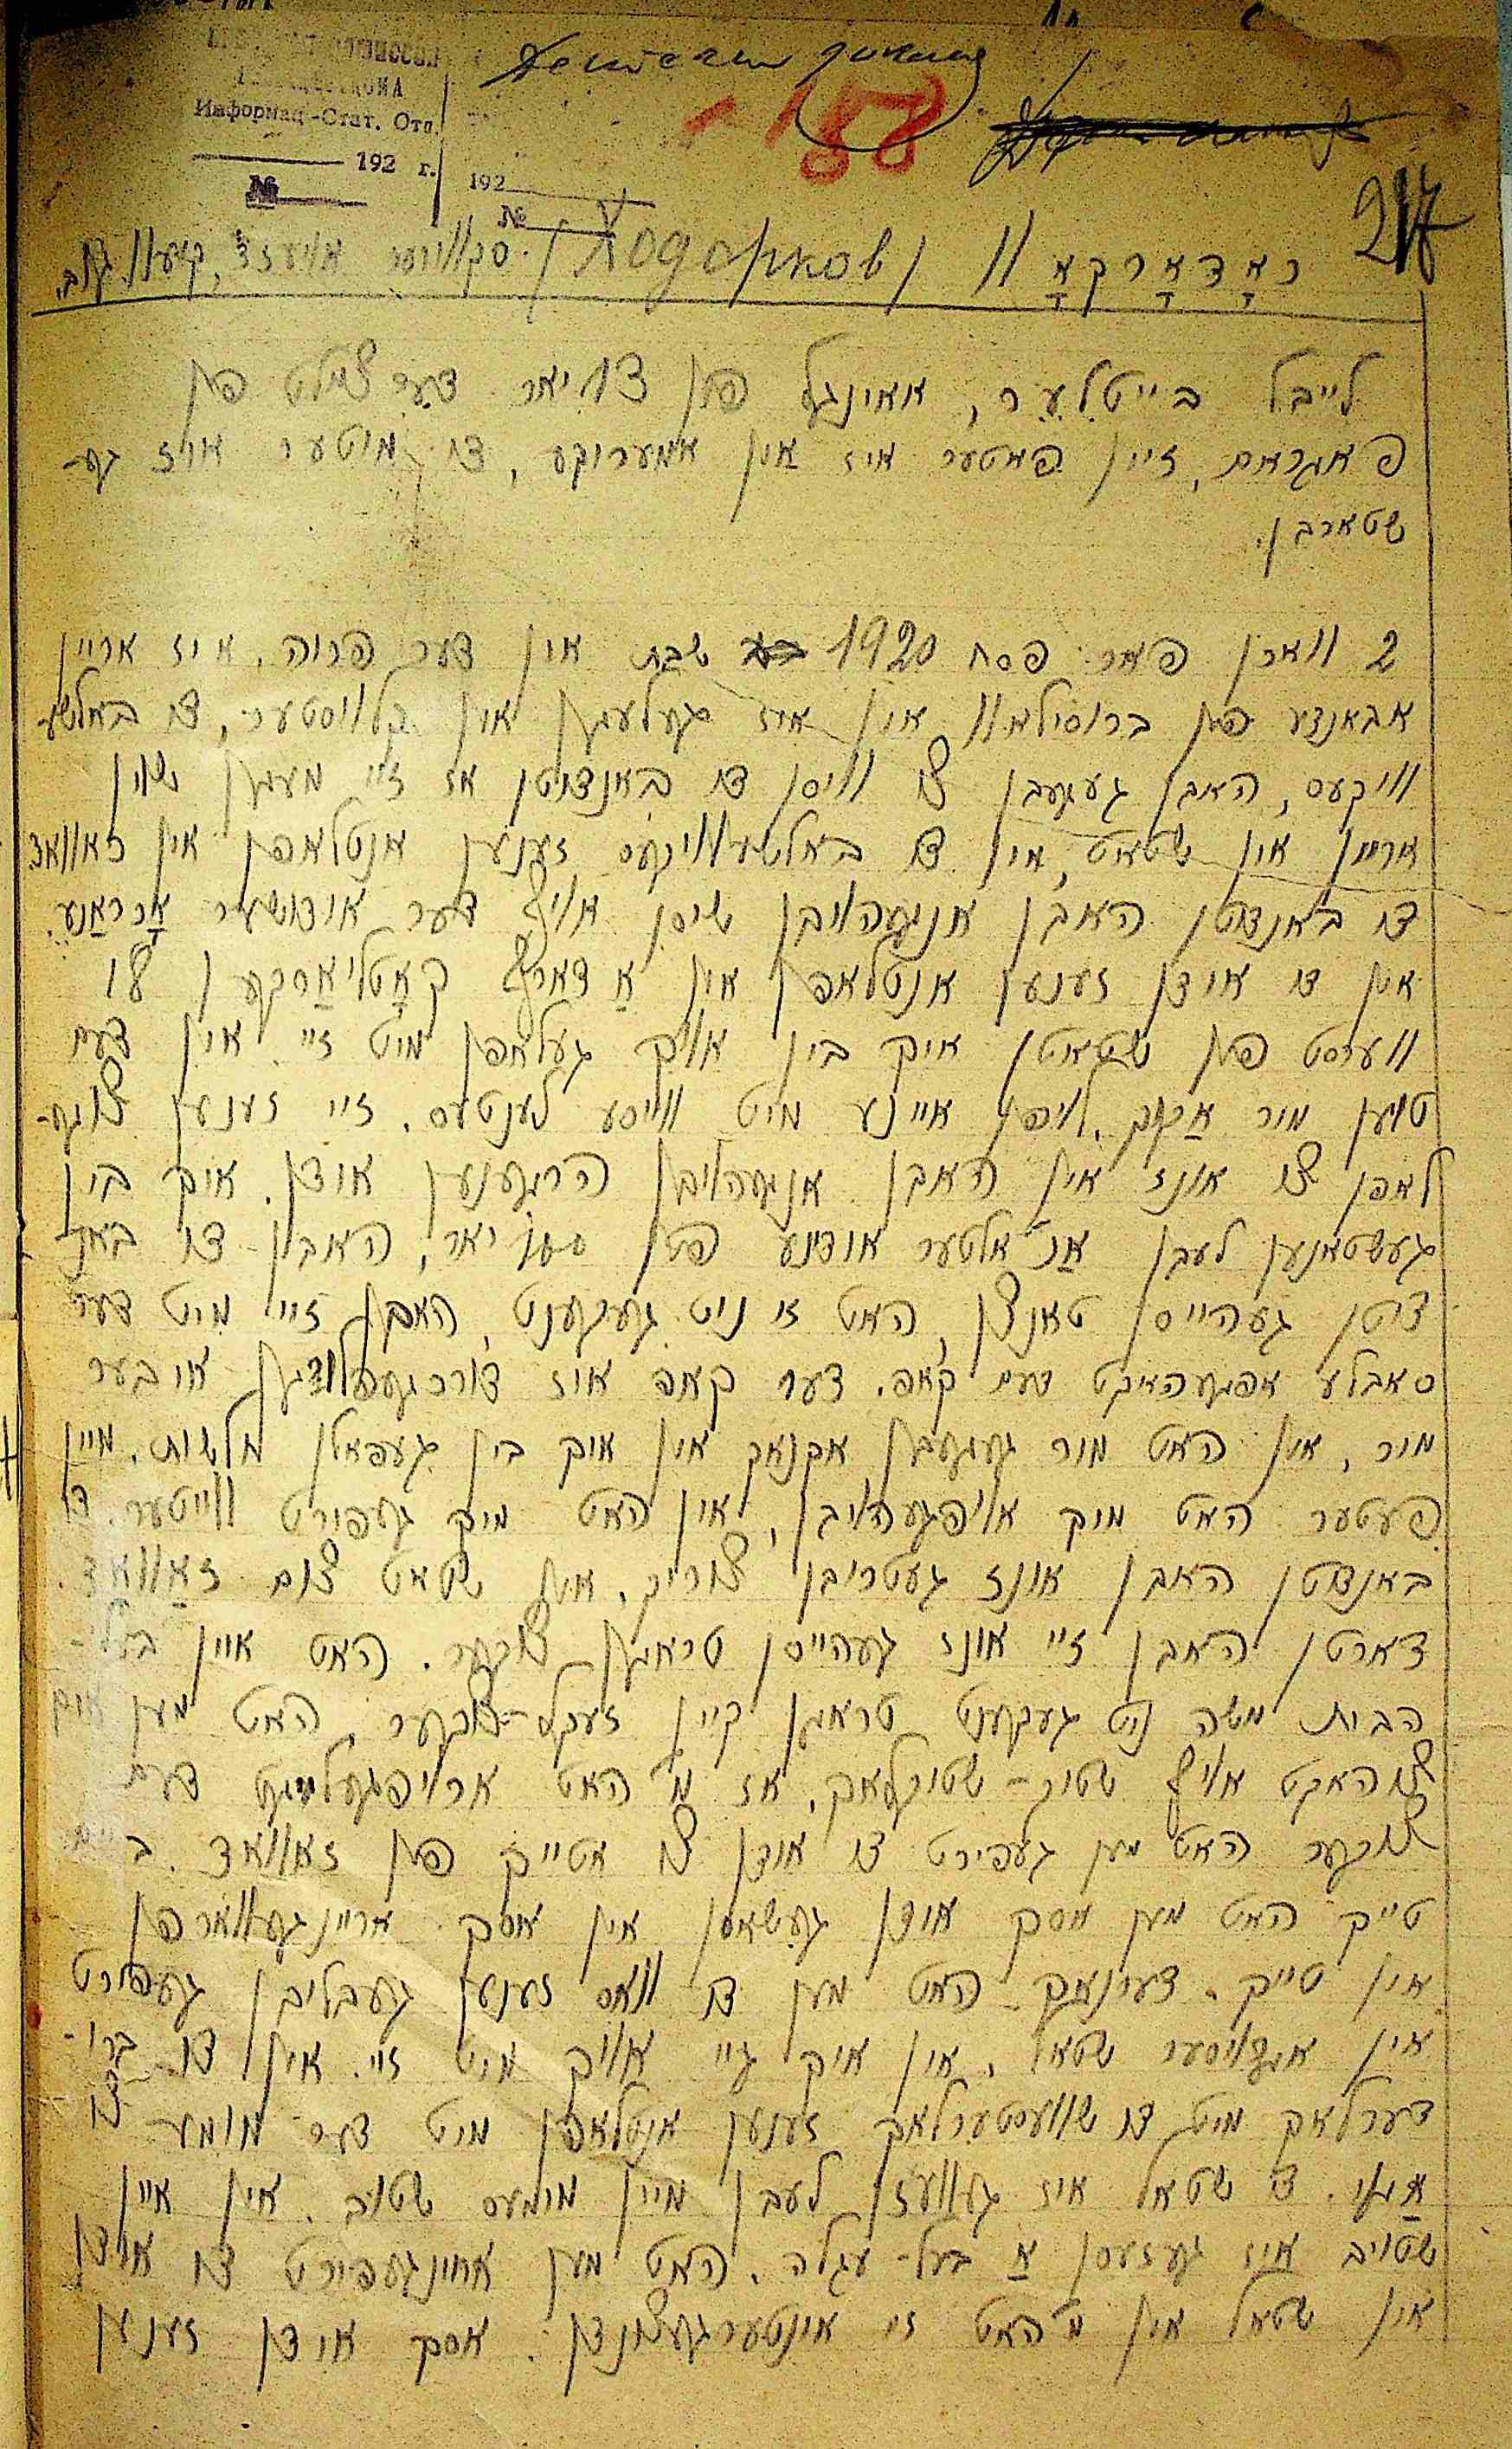 Информац-Стат. Отд.
192 г. 192
№ №
188
217
כאָדאָרקאָוו / Ходорков / סקווירער אויעזד, קיעוו. גוב.
לייבל בייטלער, א אינגל פון 13 יאר דערציילט פון
פאגראם, זיין פאטער איז אין אמעריקע, די מוטער איז גע-
שטארבן.
2 וואכן פאר פסח 1920 שבת אין דער פריה, איז אריין
אבאנדע פון ברוסילאוו אין איז געלעגן אין קלויסטער, די באלשע-
וויקעס, האבן געגעבן צו וויסן די באנדיטן אז זיי מעגן שוין
אריין אין שטאט, אין די באלשעוויקעס זענען אנטלאפן אין זאוואד
די באנדיטן האבן אנגעהויבן שיסן אויף דער אידישער אָכראַנע.
אין די אידן זענען אנטלאפן אין אַ דארף קאָטליאַרקע
ווערסט פון שטאטן איך בין אוועק געלאפן מיט זיי. אין דעם
טוען מיר אַ קוק, לויפן איינע מיט ווייסע לענטעס, זיי זענען צוגע-
לאפן צו אונז אין האבן אנגעהויבן הרגענען אידן. איך בין
געשטאנען לעבן אַנ'אלטער אידענע פון 100 יאר, האבן די באנ
דיטן געהייסן טאנצן, האט זי ניט געקענט, האבן זיי מיט דער
סאבליע אפגעהאקט דעם קאפ. דער קאפ איז דורכגעפלויגן איבער
מיר, אין האט מיר געגעבן אקנאק אין איך בין געפאלן חלשות. מיין
פעטער האט מיך אויפגעהויבן, אין האט מיך געפירט ווייטער. די
באנדיטן האבן אונז געטריבן צוריק, אין שטאט צום זאַוואָד.
דארטן האבן זיי אונז געהייסן טראגן צוקער. האט איין בעל-
הבית משה ניט געקענט טראגן קיין זעקל-צוקער, האט מען אים
צוהאקט אויף שטיק-שטיקלאך, אז מ'האט ארויפגעלייגט דעם
צוקער האט מען געפירט די אידן צו אטייך פון זאַוואָד. ביים
טייך האט מען אסך אידן געשאסן אין אסך אריינגעווארפן
אין טייך. דערנאך האט מען די וואס זענען געבליבן געפירט
אין אגרויסער שטאל, אין איך גיי אוועק מיט זיי. אין די ברי-
דערלאך מיט די שוועסטערלאך זענען אנטלאפן מיט דער מומע צו
די שטאל איז געווען לעבן מיין מומעס שטוב. אין איין
שטויב איז געזעסן אַ בעל-עגלה. האט מען אריינגעפירט די אידן
אין שטאל אין מ'האט זי אונטערגעצונדן. אסך אידן זענען